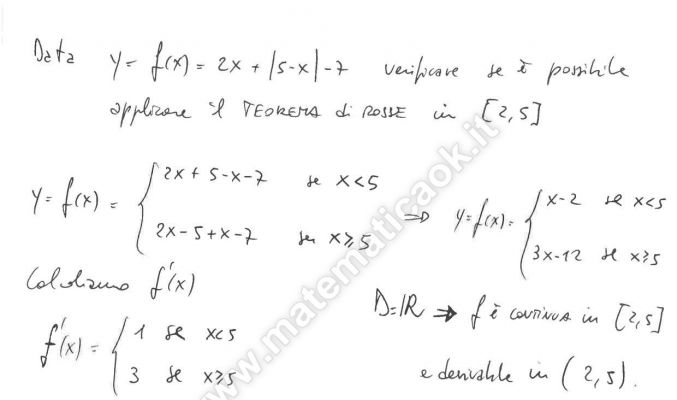 Data y = f(x) = 2x + |5-x| -7 verificare se è possibile
applicare il TEOREMA di ROSSE in [2,5]
y = f(x) = { 2x + 5-x-7 se x<5
2x-5+x-7 se x≥5
=> y=f(x)= { x-2 se x<5
3x-12 se x≥5
Calcoliamo f'(x)
f'(x) = { 1 se x<5
3 se x≥5
D=IR => f è CONTINUA in [2,5]
e derivabile in (2,5).
www.matematicaok.it